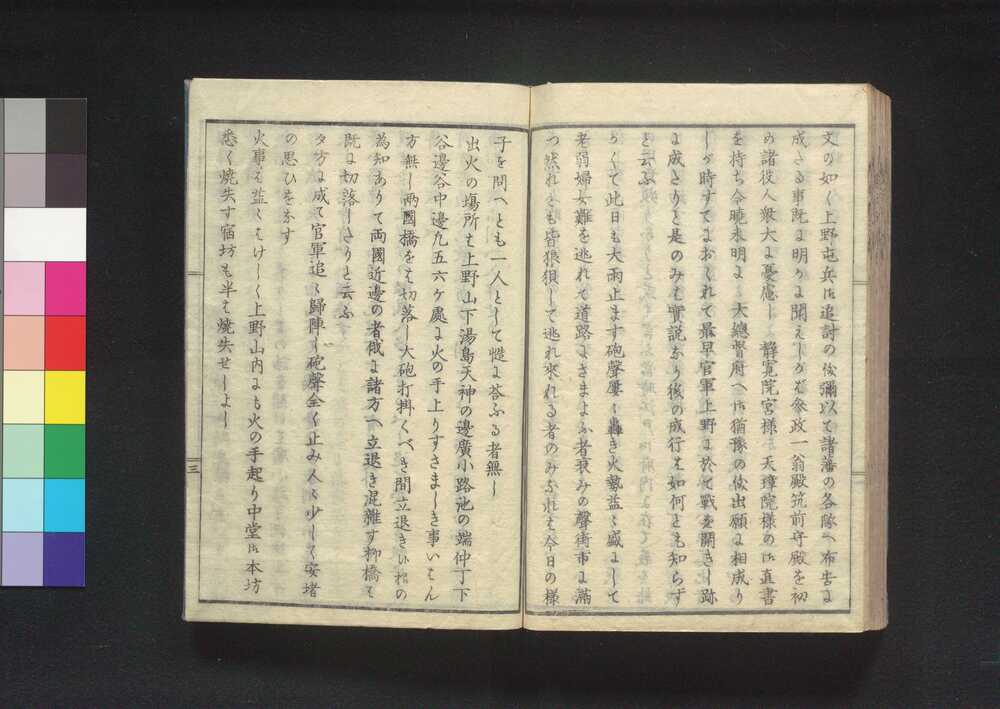 文の如く上野屯兵御追討の儀彌以て諸藩の各隊へ布告に
成たる事既に明かに聞えしかば參政一翁殿筑前守殿を初
め諸役人衆大に憂慮し　靜寛院宮樣　天璋院樣の御直書
を持ち今曉未明に　大總督府へ御猶豫の儀出願に相成り
しが時すでにおくれて最早官軍上野に於て戰を開きし跡
に成たりと是のみは實説なり後の成行は如何とも知らず
と云ふ
かくて此日も大雨止ます砲聲屢々轟き火勢益々盛にして
老弱婦女難を逃れて道路にさまよふ者哀みの聲街市に滿
つ然れとも皆狼狽して逃れ來れる者のみなれは今日の樣
子を問へとも一人として慥に答ふる者無し
出火の塲所は上野山下湯島天神の邊廣小路池の端仲丁下
谷邊谷中邊凡五六ケ處に火の手上りすさましき事いはん
方無し兩國橋をは切落し大砲打掛くべき間立退き候樣の
為知ありて両國近邊の者俄に諸方へ立退き混雜す柳橋は
既に切落したりと云ふ
夕方に成て官軍追々歸陣し砲聲全く止み人々少しく安堵
の思ひをなす
火事は益々はけしく上野山内にも火の手起り中堂御本坊
悉く焼失す宿坊も半は焼失せしよし
三